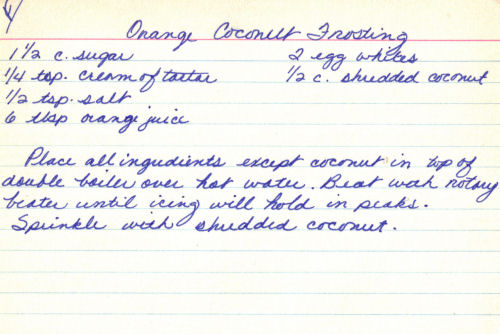 Orange Coconut Frosting
1 1/2 c. sugar 2 egg whites
1/4 tsp. cream of tartar 1/2 c. shredded coconut
1/2 tsp. salt
6 tbsp orange juice
Place all ingredients except coconut in top of
double boiler over hot water. Beat with rotary
beater until icing will hold in peaks.
Sprinkle with shredded coconut.